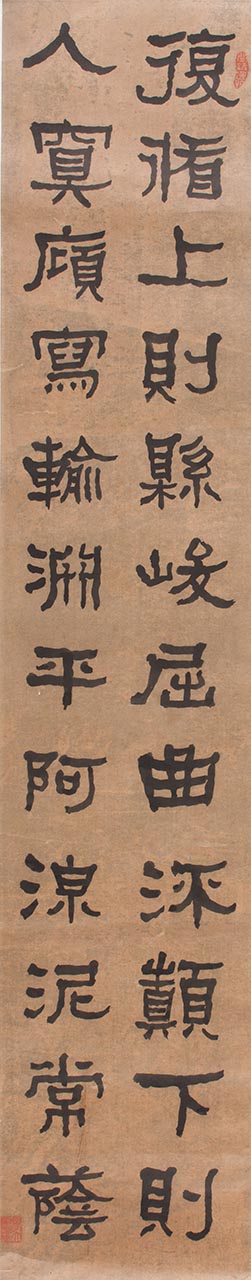 復循上則縣峻屈曲流顛下則
入冥廎寫輸淵平阿湶泥常蔭